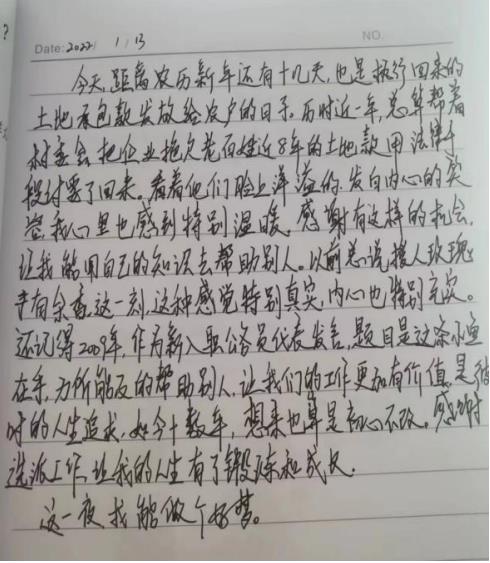 Date: 2022/ 1/ 13
NO.
今天,距离农历新年还有十几天,也是执行回来的
土地承包款发放给农户的日子。历时近一年,总算帮着
村委会把企业拖欠老百姓近8年的土地款用法律手
段讨要了回来。看着他们脸上洋溢的发自内心的笑
容,我心里也感到特别温暖。感谢有这样的机会,
让我能用自己的知识去帮助别人。以前总说授人玫瑰
手有余香,这一刻,这种感觉特别真实,内心也特别充实。
还记得2009年,作为新入职公务员代表发言,题目是这条小鱼
在乎,为所能及的帮助别人,让我们的工作更加有价值,是彼
时的人生追求,如今十数年,想来也算是初心不改。感谢
选派工作,让我的人生有了锻炼和成长。
这一夜我能做个好梦。